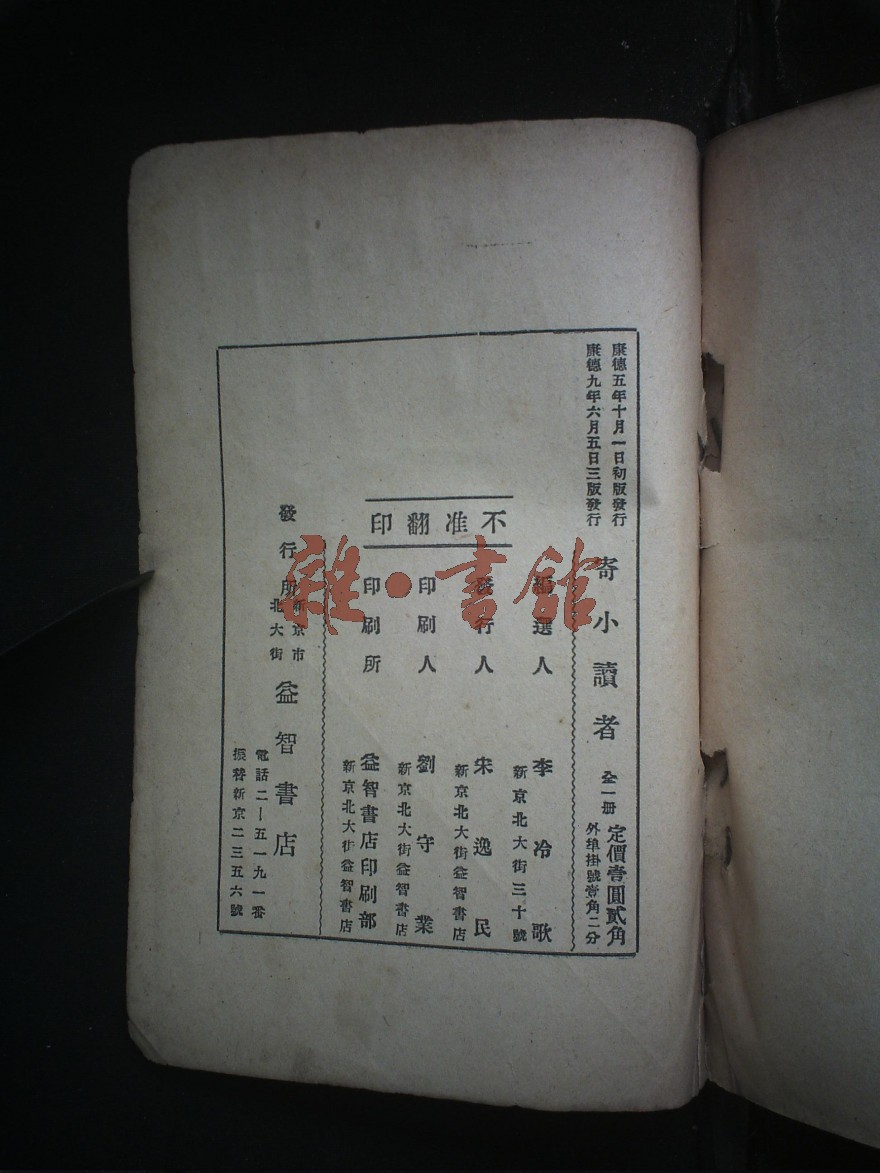 康德五年十月一日初版發行
康德九年六月五日三版發行
寄小讀者 全一冊
定價壹圓貳角
外埠掛號壹角二分
不准翻印
編選人 李冷歌
新京北大街三十號
發行人 宋逸民
新京北大街益智書店
印刷人 劉守業
新京北大街益智書店
印刷所 益智書店印刷部
新京北大街益智書店
發行所 新京市北大街 益智書店
電話二—五一九一番
振替新京二三五六號
雜·書館